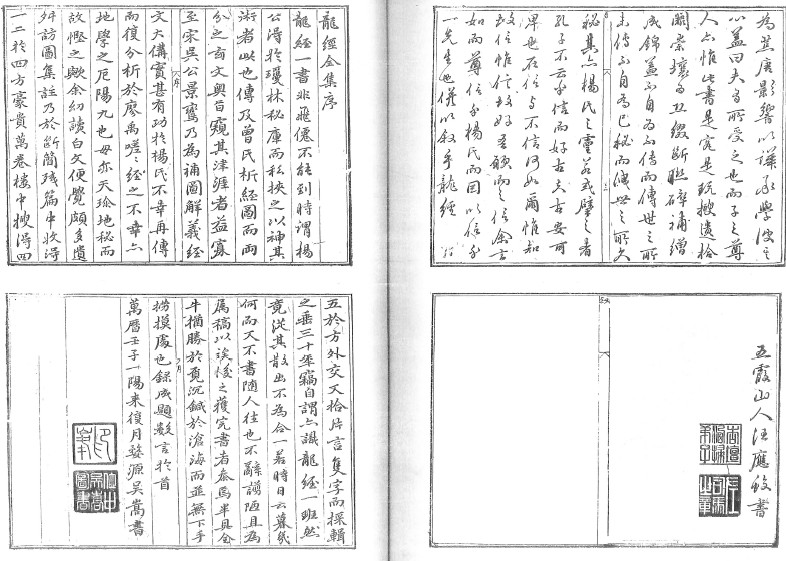 響以誤承學淺之
心蓋曰夫有所受之也而子之尊
人亦惟此書是究是玩搜遺拾
綴斷聯碎補繒
成錦蓋不自為而傳世之所
未傳不自為己秘而世之所久
秘其亦楊氏之靈若或譬之者
孔子不云乎信而好古夫古安可
也在信与不信何如爾惟知
故信惟信故好吾願之信余言
如而尊信乎楊氏而因以信乎
一先生也僅以叙乎龍經
五霞山人汪應蛟書
龍經全集序
龍經一書非飛僊不能到時謂楊
公得於瓊林秘庫而私挾之以神其
術者此也傳及曾氏析經圖而兩
分之玄文奧旨窺其津涯者益寡
至宋吳公景鸞乃為補圖解義經
文大備實甚有功於楊氏不幸再傳
而復分析於廖禹嗟嗟經之不幸亦
地學之厄陽九也毋亦天珍地秘而
故慳之歟余幼讀白文便覺頗多遺
舛訪圖集註乃於斷簡殘篇中收得
一二於四方豪貴萬卷樓中搜得四
五於方外交又拾片言隻字而採輯
之垂三十年竊自謂亦識龍經一班然
竟從其散出不為合一若時日云暮幾
何而又不書隨人往也不辭謭陋且為
屬稿以俟後之獲完書者參焉半具全
牛猶勝於覓沉鍼於滄海而並無下手
撈摸處也録成題數言於首
萬曆壬子一陽來復月婺源吳嵩書